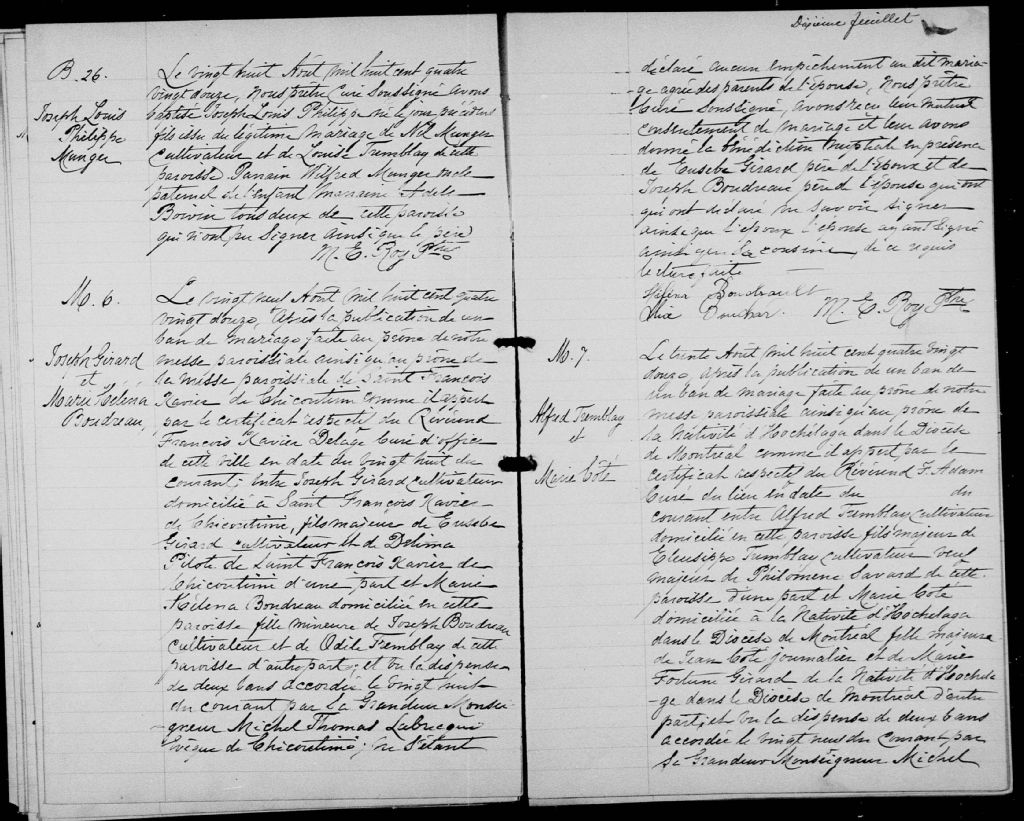 B. 26.
Joseph Louis
Philippe
Munger
Le vingt huit Août mil huit cent quatre
vingt douze, Nous prêtre Curé Soussigné avons
baptisé Joseph Louis Philippe né le jour précédent
fils issu du légitime mariage de Munger
cultivateur et de Louise Tremblay de cette
paroisse Parrain Wilfred Munger oncle
paternel de l'enfant Marraine Adèle
Boivin tous deux de cette paroisse
qui n'ont pu signer ainsi que le père
M. E. Roy Ptre
M. 6.
Joseph Girard
et
Marie Héléna
Boudreau,
Le vingt neuf Août mil huit cent quatre
vingt douze, Après la publication de un
ban de mariage faite au prône de notre
messe paroissiale ainsi qu'au prône de
la messe paroissiale de Saint François
Xavier de Chicoutimi comme il appert
par le certificat respectif du Révérend
François Xavier Delâge Curé d'office
de cette ville en date du vingt huit du
courant; entre Joseph Girard cultivateur
domicilié à Saint François Xavier
de Chicoutimi, fils majeur de Eusèbe
Girard cultivateur et de Delima
Pilote de Saint François Xavier de
Chicoutimi d'une part et Marie
Héléna Boudreau domiciliée en cette
paroisse fille mineure de Joseph Boudreau
cultivateur et de Odile Tremblay de cette
paroisse d'autre part; et vu la dispense
de deux bans accordée le vingt huit
du courant par Sa Grandeur Monsei
gneur Michel Thomas Labrecque
Evêque de Chicoutimi; ne s'étant
Dixième feuillet
déclaré aucun empêchement au dit maria-
ge agréé des parents de l'épouse, Nous prêtre
Curé Soussigné, avons reçu leur mutuel
consentement de mariage et leur avons
donné la bénédiction nuptiale en présence
de Eusèbe Girard père de l'époux et de
Joseph Boudreau père de l'épouse qui ont
qui ont déclaré ne savoir signer
ainsi que l'époux l'épouse ayant signé
ainsi que la cousine, de ce requis
lecture faite
Héléna Boudrault
M. E. Roy Ptre
M. 7.
Alfred Tremblay
et
Marie Coté
Le trente Août mil huit cent quatre vingt
douze, après la publication de un ban de
un ban de mariage faite au prône de notre
messe paroissiale ainsi qu'au prône de
la Nativité d'Hochelaga dans le Diocèse
de Montréal comme il appert par le
certificat respectif du Révérend F. Adam
Curé du lieu en date du du
courant entre Alfred Tremblay cultivateur
domicilié en cette paroisse fils majeur de
Eleusippe Tremblay cultivateur veuf
majeur de Philomène Savard de cette
paroisse d'une part et Marie Coté
domiciliée à la Nativité d'Hochelaga
dans le Diocèse de Montréal fille majeure
de Jean Coté journalier et de Marie
Fortune Girard de la Nativité d'Hochela
-ga dans le Diocèse de Montréal d'autre
part; et vu la dispense de deux bans
accordée le vingt neuf du courant par
Sa Grandeur Monseigneur Michel